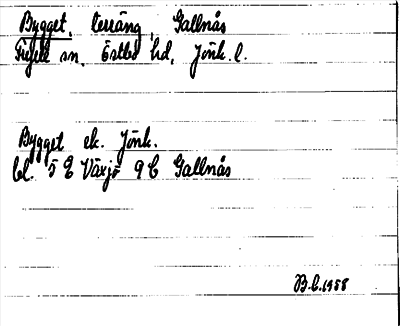 Bygget, terräng, Gallnås
sn, Östbo hd, Jönk. l.
Bygget ek. Jönk.
bl. 5 E Växjö 9 b Gallnås
B.L. 1958